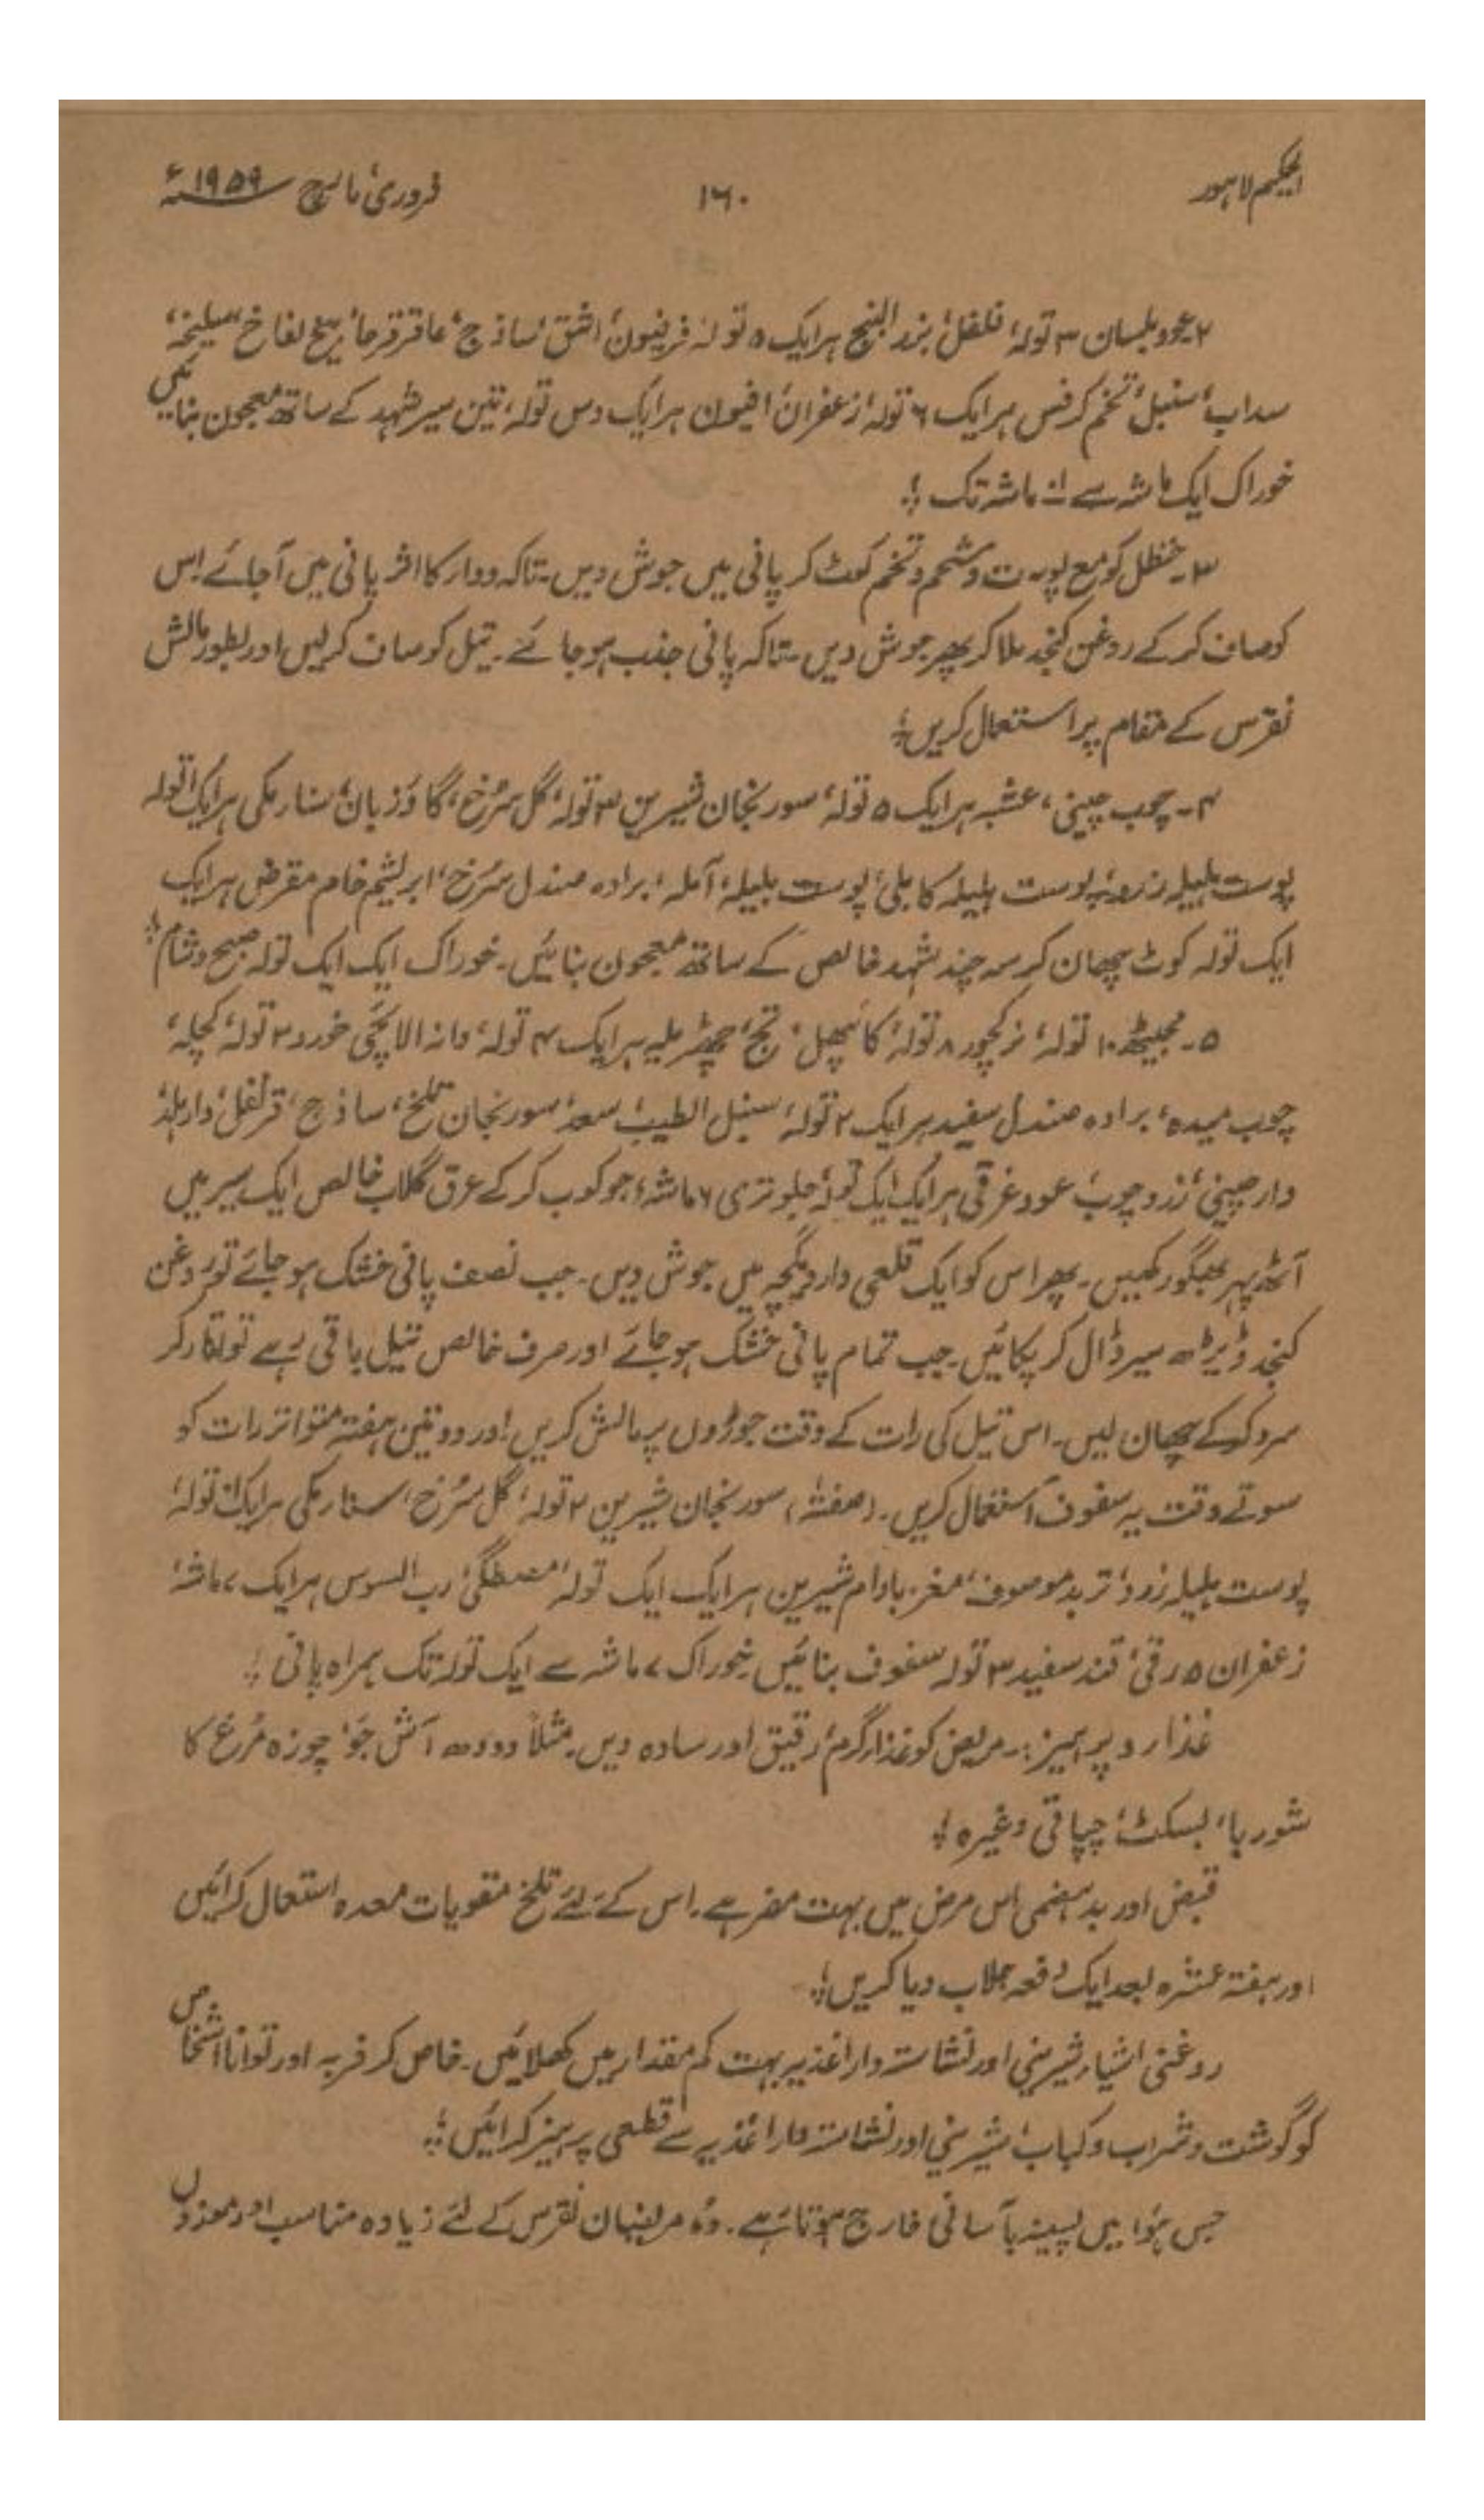 الحکیم لاہور
۱۶۰
فروری، مارچ ۱۹۵۹ء
۲۔ عود بلسان ۳ تولہ، فلفل، بزر البنج ہر ایک ۵ تولہ، فرفیون، اشق، ساذج، عاقرقرحا، بیخ لفاح، سلیخہ،
سداب، سنبل، تخم کرفس ہر ایک ۶ تولہ، زعفران، افیون ہر ایک دس تولہ، تین سیر شہد کے ساتھ معجون بنائیں
خوراک ایک ماشہ سے ماشہ تک ؛
۳۔ حنظل کو مع پوست و شحم و تخم کوٹ کر پانی میں جوش دیں۔ تاکہ دوار کا اثر پانی میں آجائے اس
کو صاف کر کے روغن کنجد ملا کر پھر جوش دیں۔ تاکہ پانی جذب ہو جائے۔ تیل کو صاف کر لیں اور بطور مالش
نقرس کے مقام پر استعمال کریں؛
۴۔ چوب چینی، عشبہ ہر ایک ۵ تولہ، سورنجان شیریں ۳ تولہ، گل سُرخ، گاؤزبان، سنار مکی ہر ایک ۲ تولہ
پوست ہلیلہ زرد، پوست ہلیلہ کابلی، پوست بلیلہ، آملہ، برادہ صندل سُرخ، ابریشم خام مقرض ہر ایک
ایک تولہ کوٹ چھان کر سہ چند شہد خالص کے ساتھ معجون بنائیں۔ خوراک ایک ایک تولہ صبح و شام؛
۵۔ مجیٹھ ۱۰ تولہ، نرکچور ۸ تولہ، کائپھل، تج، چھڑیلہ ہر ایک ۴ تولہ، دانہ الائچی خورد ۳ تولہ، کچلہ،
چوب میدہ، برادہ صندل سفید ہر ایک ۲ تولہ، سنبل الطیب، سعد، سورنجان تلخ، ساذج، قرنفل، دار ہلد،
دار چینی، زرد چوب، عود غرقی ہر ایک ایک تولہ، جلوتری ۶ ماشہ، جوکوب کر کے عرق گلاب خالص ایک سیر میں
آٹھ پہر بھگو رکھیں۔ پھر اس کو ایک قلعی دار دیگچہ میں جوش دیں۔ جب نصف پانی خشک ہو جائے تو روغن
کنجد ڈیڑھ سیر ڈال کر پکائیں۔ جب تمام پانی خشک ہو جائے اور صرف خالص تیل باقی رہے تو اتار کر
سرد کر کے چھان لیں۔ اس تیل کی رات کے وقت جوڑوں پر مالش کریں اور دو تین ہفتہ متواتر رات کو
سوتے وقت یہ سفوف استعمال کریں۔ (صفتہ) سورنجان شیریں ۲ تولہ، گل سُرخ، سنار مکی ہر ایک تولہ،
پوست ہلیلہ زرد، تربد موصوف، مغز بادام شیریں ہر ایک ایک تولہ، مصطگی، رب السوس ہر ایک ۷ ماشہ،
زعفران ۵ رتی، قند سفید ۳ تولہ سفوف بنائیں خوراک ۷ ماشہ سے ایک تولہ تک ہمراہ پانی ؛
غذار و پرہیز:۔ مریض کو غذا گرم، رقیق اور سادہ دیں۔ مثلاً دودھ آش جَو، چوزہ مُرغ کا
شوربا، بسکٹ، چپاتی وغیرہ ؛
قبض اور بدہضمی اس مرض میں بہت مضر ہے۔ اس کے لئے تلخ مقویات معدہ استعمال کرائیں
اور ہفتہ عشرہ بعد ایک دفعہ جلاب دیا کریں؛
روغنی اشیار شیرینی اور نشاستہ دار اغذیہ بہت کم مقدار میں کھلائیں۔ خاص کر فربہ اور توانا اشخاص
کو گوشت و شراب و کباب، شیرینی اور نشاستہ دار اغذیہ سے قطعی پرہیز کرائیں؛
جس ہَوا میں پسینہ بآسانی خارج ہوتا ہے۔ وُہ مریضان نقرس کے لئے زیادہ مناسب اور موزوں